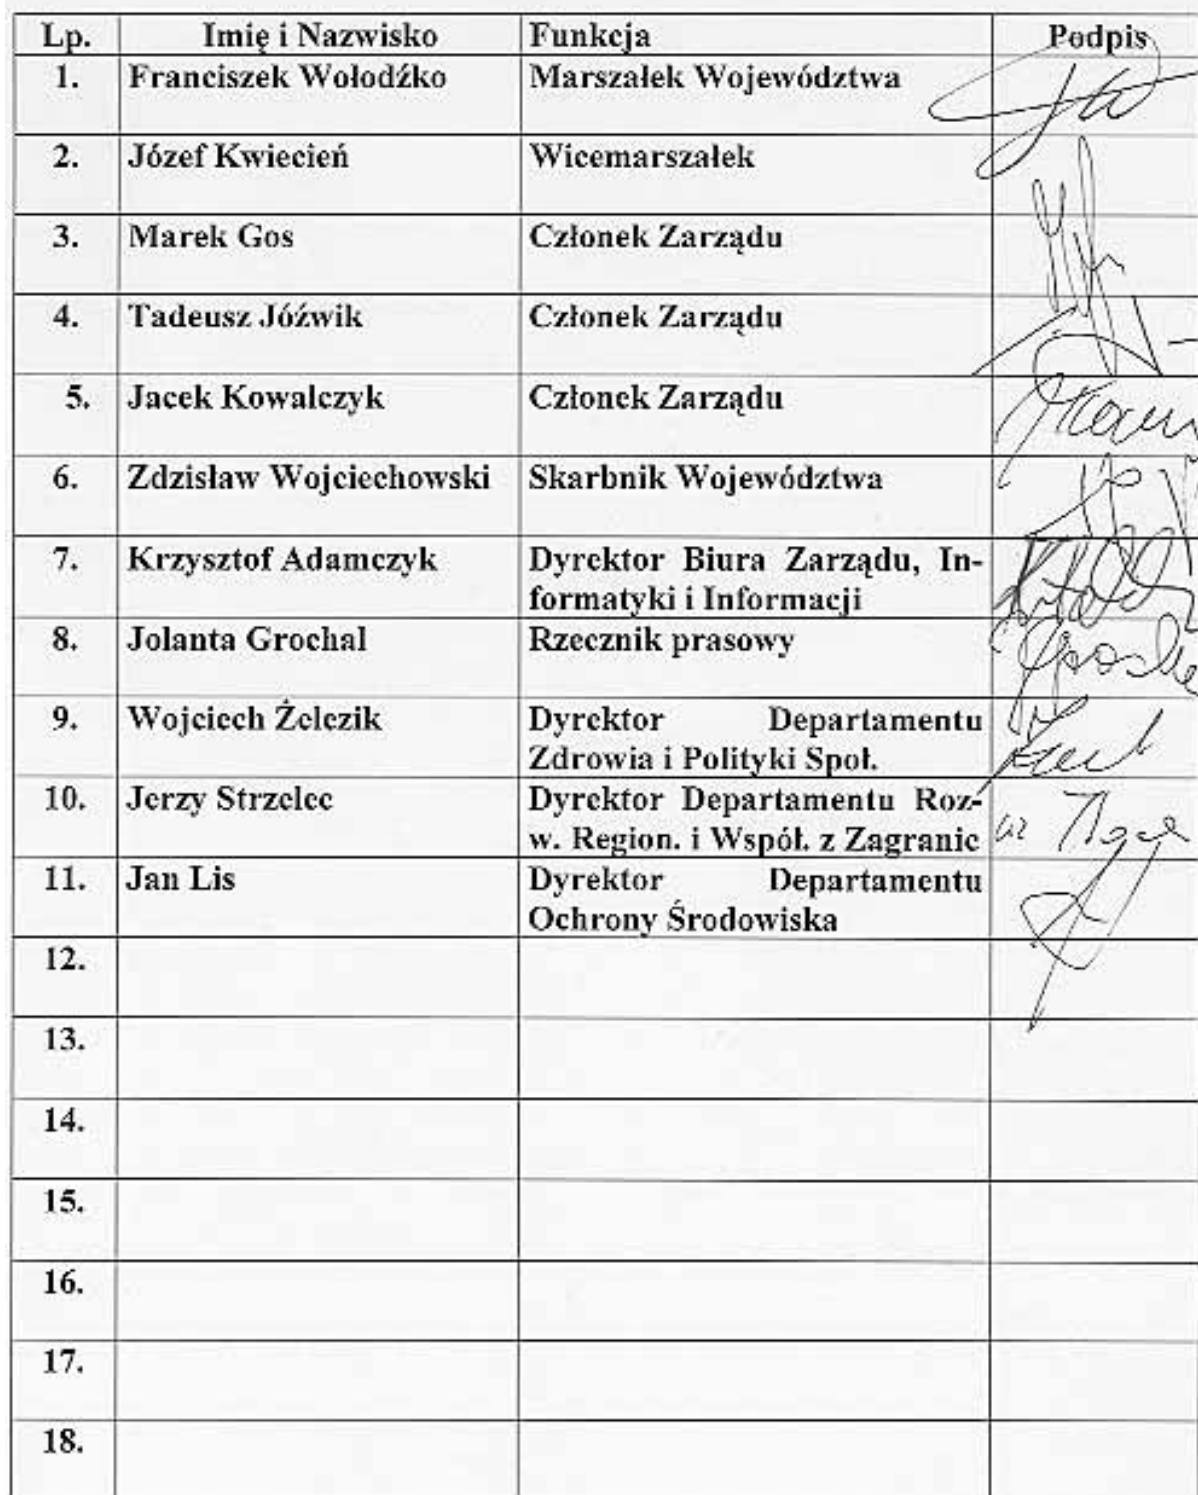 Lp. Imię i Nazwisko Funkcja Podpis
1. Franciszek Wołodźko Marszałek Województwa
2. Józef Kwiecień Wicemarszałek
3. Marek Gos Członek Zarządu
4. Tadeusz Jóźwik Członek Zarządu
5. Jacek Kowalczyk Członek Zarządu
6. Zdzisław Wojciechowski Skarbnik Województwa
7. Krzysztof Adamczyk Dyrektor Biura Zarządu, In-
formatyki i Informacji
8. Jolanta Grochal Rzecznik prasowy
9. Wojciech Żelezik Dyrektor Departamentu
Zdrowia i Polityki Społ.
10. Jerzy Strzelec Dyrektor Departamentu Roz-
w. Region. i Współ. z Zagranic
11. Jan Lis Dyrektor Departamentu
Ochrony Środowiska
12.
13.
14.
15.
16.
17.
18.